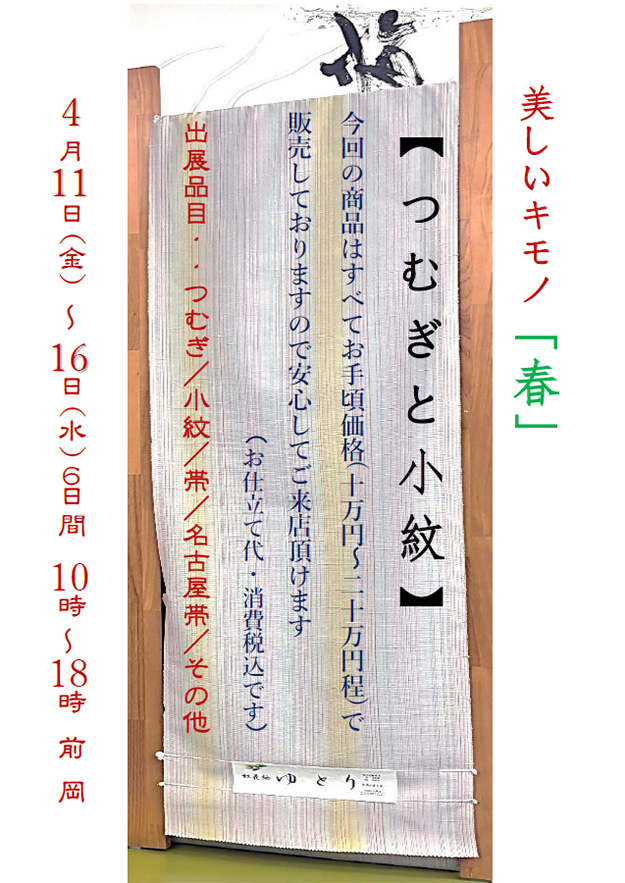 美しいキモノ「春」
【つむぎと小紋】
今回の商品はすべてお手頃価格(十万円～二十万円程)で
販売しておりますので安心してご来店頂けます
(お仕立て代・消費税込です)
出展品目・・つむぎ/小紋/帯/名古屋帯/その他
4月11日(金)～16日(水)6日間 10時～18時 前岡
ゆとり